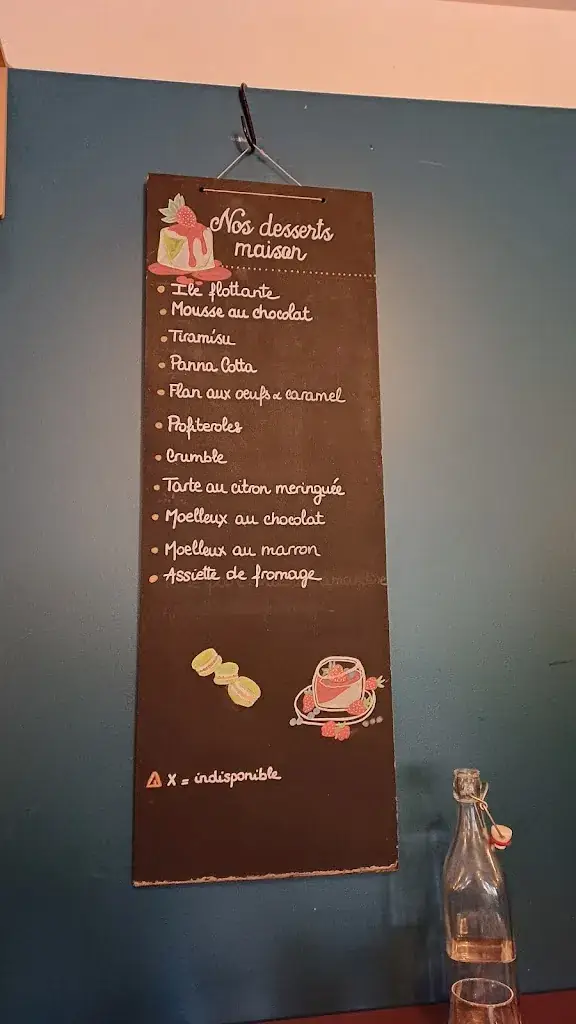 Nos desserts
maison
• Ile flottante
• Mousse au chocolat
• Tiramisu
• Panna Cotta
• Flan aux oeufs & caramel
• Profiteroles
• Crumble
• Tarte au citron meringuée
• Moelleux au chocolat
• Moelleux au marron
• Assiette de fromage
⚠ X = indisponible